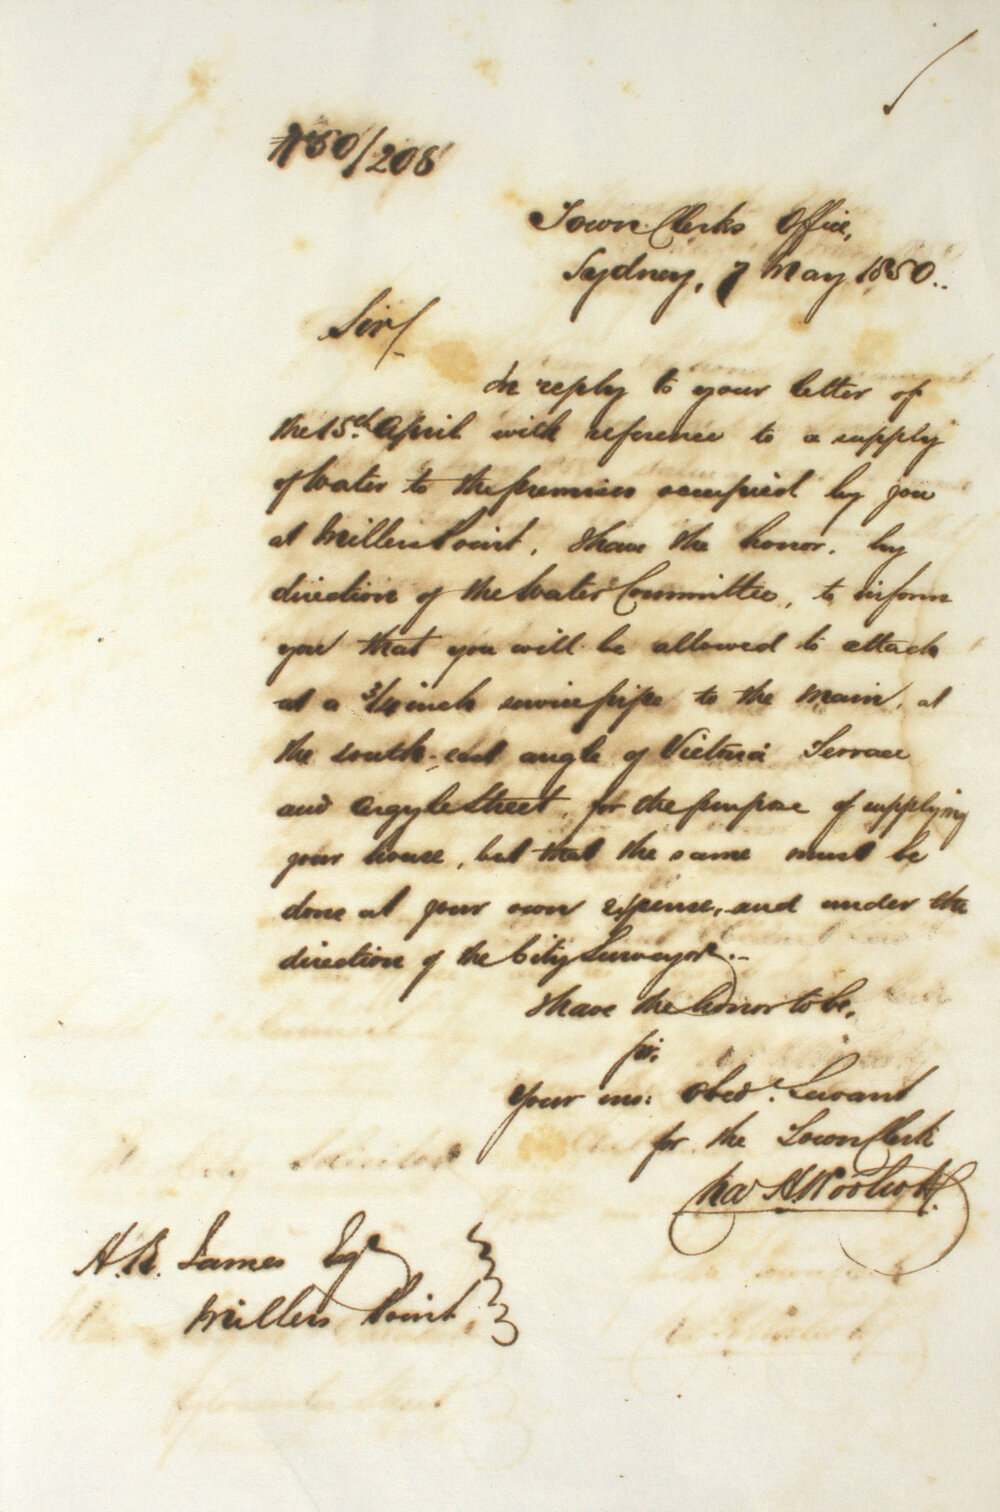 50/208
Town Clerks Office,
Sydney, 7 May 1850..
Sir/
In reply to your letter of
the 15th. April with reference to a supply
of Water to the premises occupied by you
at Millers Point, I have the honor, by
direction of the Water Committee, to inform
you that you will be allowed to attach
at a 3/4 inch service pipe to the Main, at
the south-east angle of Victoria Terrace
and Argyle Street, for the purpose of supplying
your house, but that the same must be
done at your own expense, and under the
direction of the City Surveyor.-
I have the honor to be,
Sir,
Your mo: Obedt. Servant
for the Town Clerk
Chas H Woolcott.
H.R. James Esqr
Millers Point